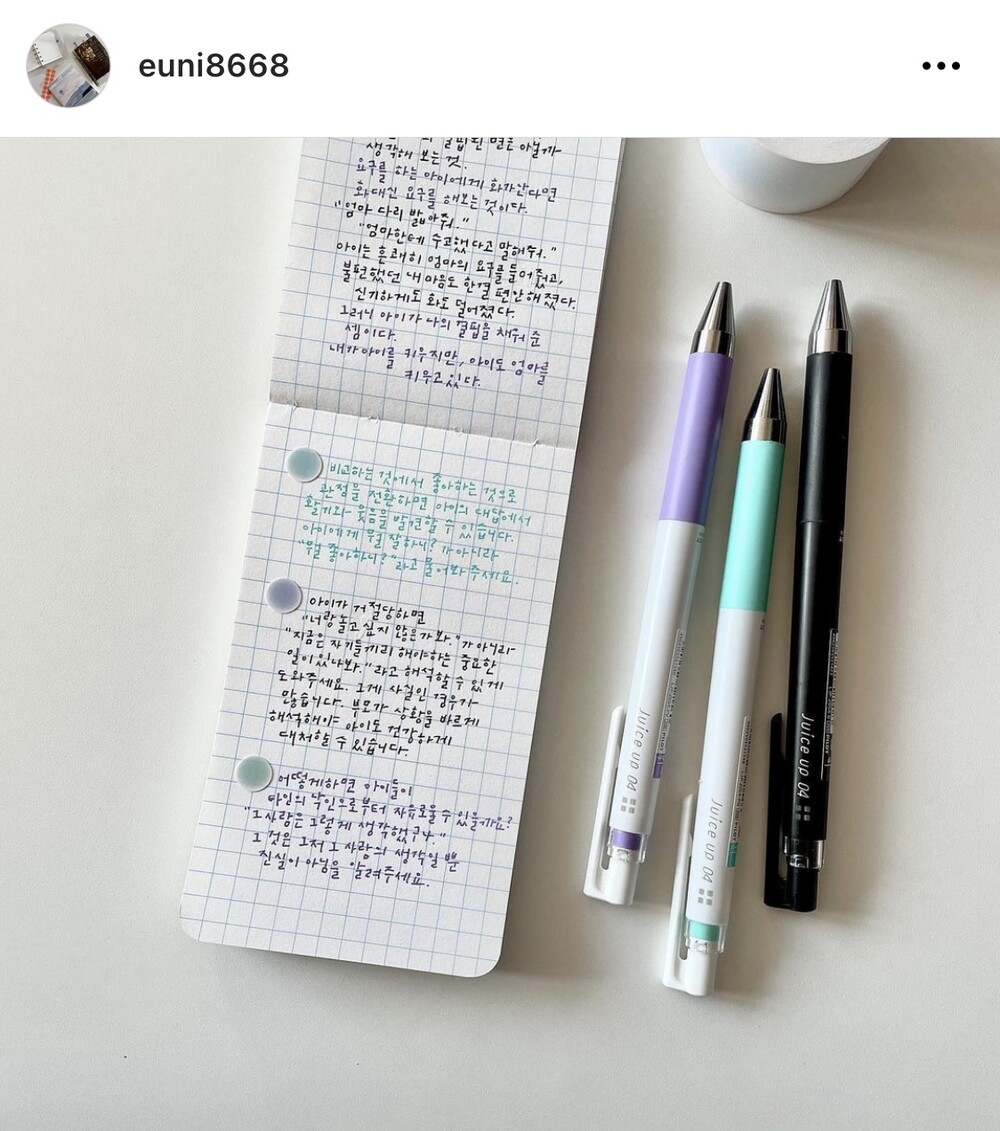 euni8668
생각해 보는 것.
요구를 하는 아이에게 화가난다면
화대신 요구를 해보는 것이다.
"엄마 다리 밟아줘."
"엄마한테 수고했다고 말해줘."
아이는 흔쾌히 엄마의 요구를 들어줬고,
불편했던 내 마음도 한결 편안해졌다.
신기하게도 화도 덜어졌다.
그러니 아이가 나의 결핍을 채워 준
셈이다.
내가 아이를 키우지만, 아이도 엄마를
키우고 있다.
비교하는 것에서 좋아하는 것으로
관점을 전환하면 아이의 대답에서
활기와 웃음을 발견할 수 있습니다.
아이에게 뭘 잘하니? 가 아니라
"뭘 좋아하니?"라고 물어봐 주세요.
아이가 거절당하면
"너랑 놀고 싶지 않은가봐."가 아니라
"지금은 자기들끼리 해야하는 중요한
일이 있나봐."라고 해석할 수 있게
도와주세요. 그게 사실인 경우가
많습니다. 부모가 상황을 바르게
해석해야 아이도 건강하게
대처할 수 있습니다.
어떻게하면 아이들이
타인의 낙인으로부터 자유로울 수 있을까요?
"그 사람은 그렇게 생각했구나."
그것은 그저 그 사람의 생각일 뿐
진실이 아님을 알려주세요.
Juice up 04
Juice up 04
Juice up 04